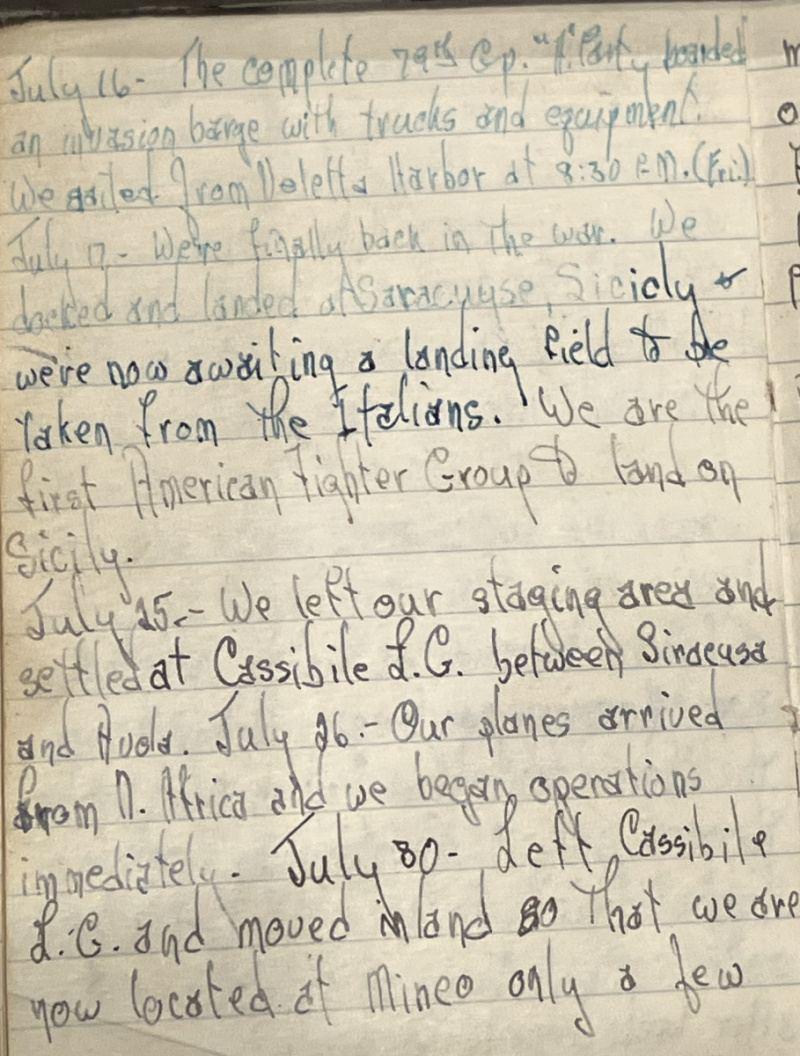 July 16- The complete 79th Gp. "A" Party boarded
an invasion barge with trucks and equipment.
We sailed from Valetta Harbor at 8:30 P.M. (Fri.)
July 17- We're finally back in the war. We
docked and landed at Saracuyse, Sicicly &
we're now awaiting a landing field to be
taken from the Italians. We are the
first American Fighter Group to land on
Sicily.
July 25.- We left our staging area and
settled at Cassibile L.G. between Siracusa
and Avola. July 26.- Our planes arrived
from N. Africa and we began operations
immediately. July 30- Left Cassibile
L.G. and moved inland so that we are
now located at Mineo only a few